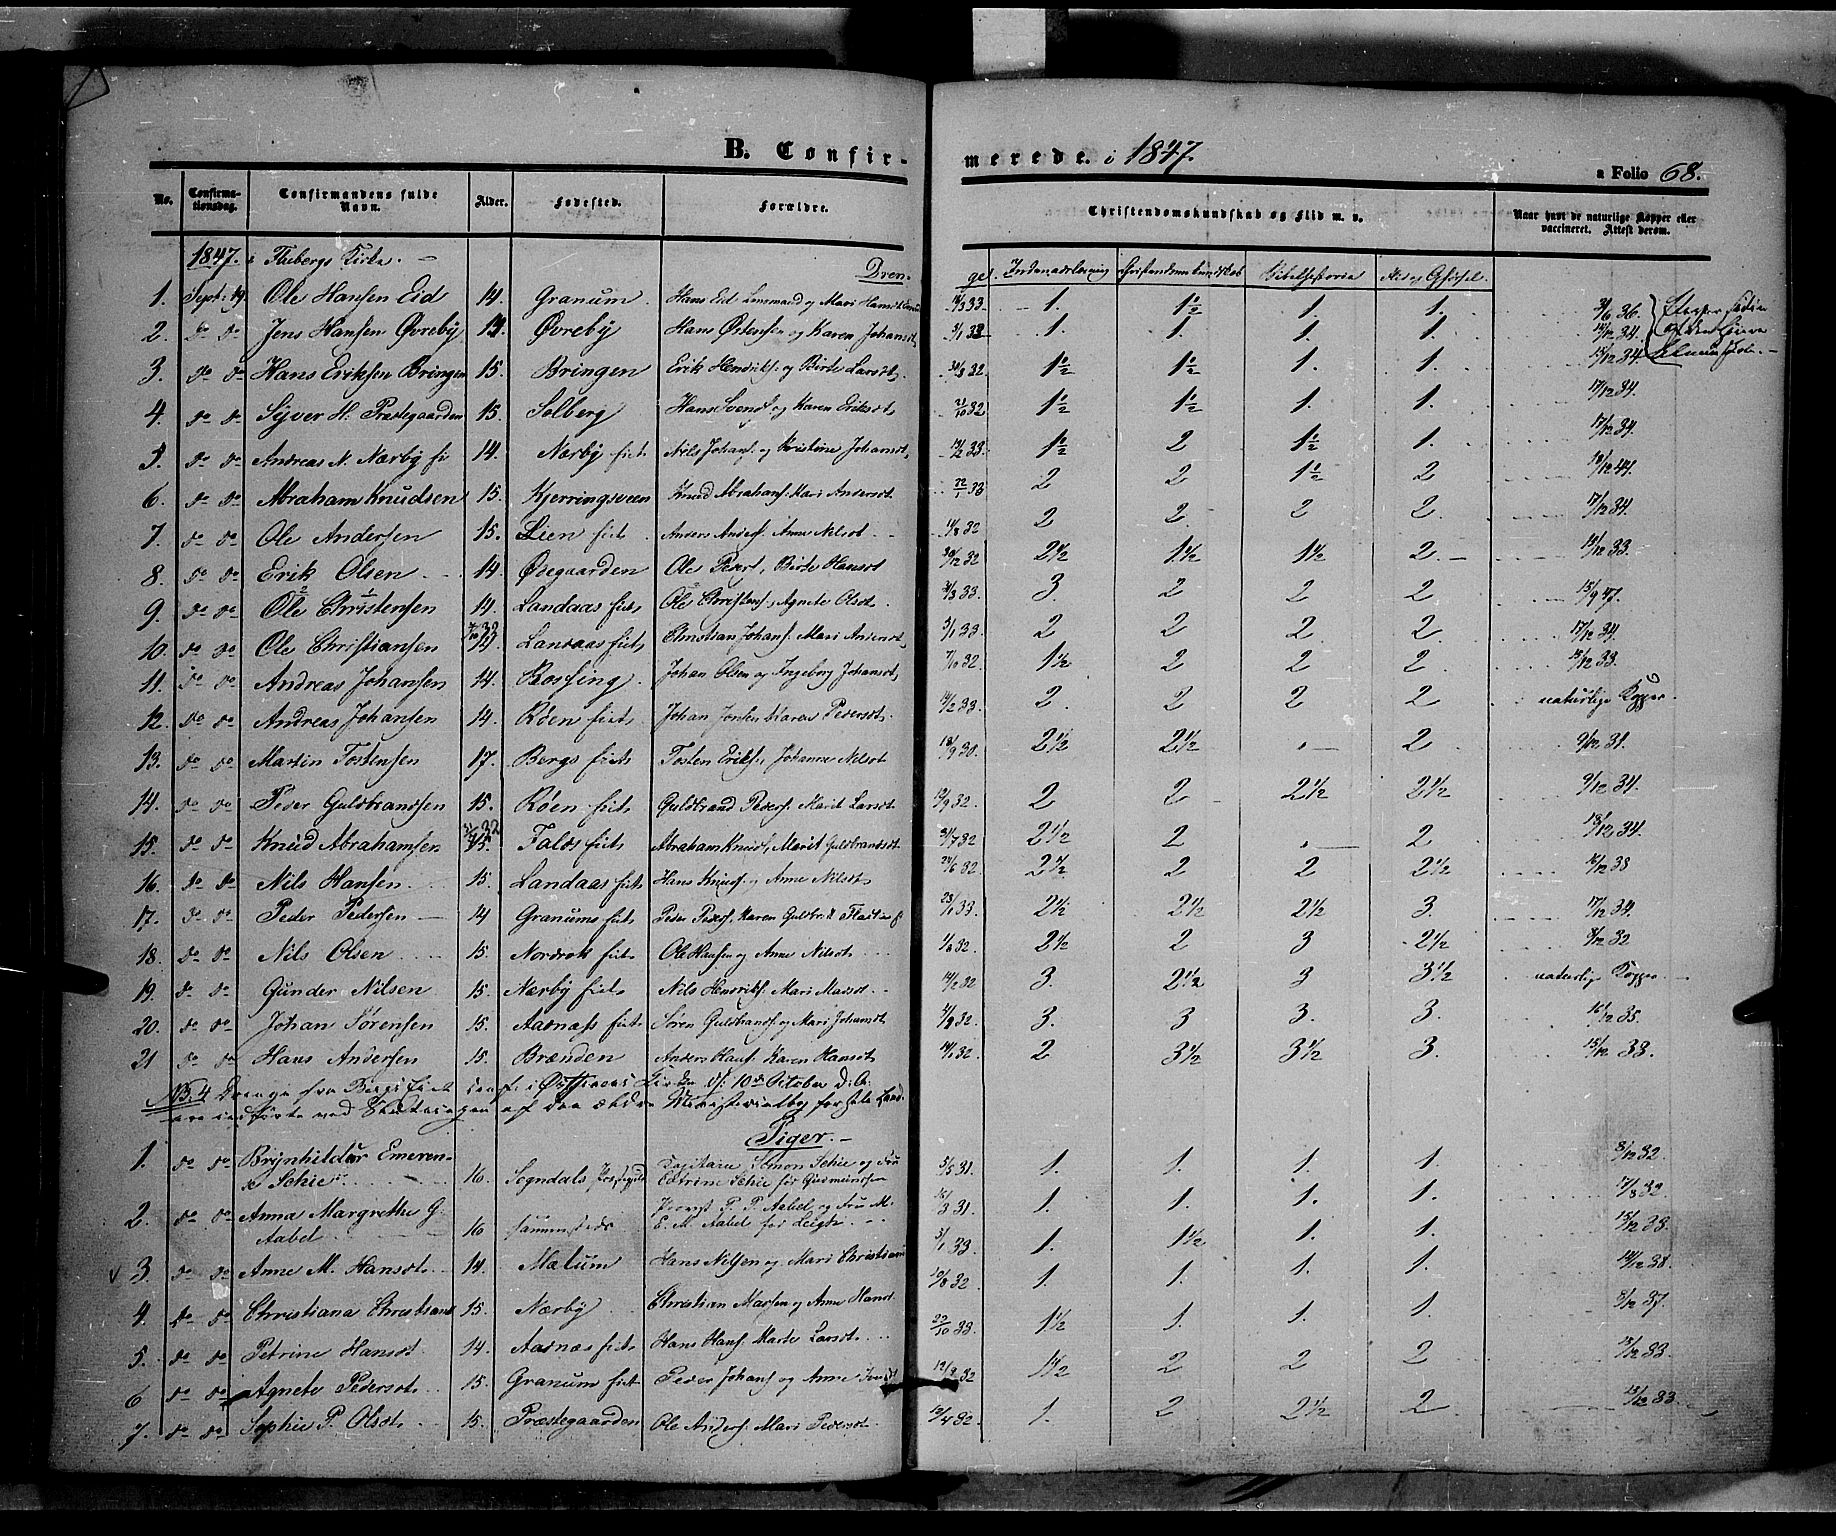 B. Confirmerede. i 1847.
a Folio 68.
No. Confirmationsdag. Confirmandens fulde Navn. Alder. Fødested. Forældre. Christendomskundskab og Flid m. v. Naar havt de naturlige Kopper eller vaccineret. Attest derom.
1847. i Flubergs Kirke. Drenge. Indenadslæsning Christendomskundskab Bibelhistorie
1. Sept: 19. Ole Hansen Eid 14. Granum. Hans Eid Lensmand og Mari Hansdt 33 1. 1½ 1. 1. 36.
2. do do Jens Hansen Øvreby Øvreby Hans Østensen og Karen Johansdt 5/1 33 1. 1. 1. 1. 34.
3. do do Hans Eriksen Bringen 15. Bringen Erik Hendriks. og Birte Larsdt. 32. 1½ 1½ 1. 1. 15/12 34.
4. do do Syver H. Præstegaarden 15. Solberg Hans Svends. og Karen Eriksdt 21/10 32 1½ 1½ 1. 1. 17/12 34.
5. do do Andreas N. Nærby ei 14. Nærby eiet Nils Johans. og Kristine Johansdt. 33. 1½ 2 1½ 1. 17/12 34.
6. do do Abraham Knudsen 15. Kjerringsveen Knud Abrahams. Mari Andersdt 22/1 33 2 2 1½ 2 44.
7. do do Ole Andersen 15. Lien eiet. Anders Anders. Anne Nilsdt. 32 2 2. 2 2. 17/12 34.
8. do do Erik Olsen 14. Øvegaarden Ole Peders. Birte Hansdt 30/12 32 2½ 1½ 1½ 2 33.
9. do do Ole Christensen 14. Landaas eiet Ole Christens. Agnete Olsdt 33. 3. 2 2 2 15/9 47.
10. do do Ole Christiansen Landaas eiet Christian Johans. Mari Andersdt. 5/1 33. 2 2 2. 2. 17/12 34.
11. do do Andreas Johansen 14. Rossing. Johan Olsen og Ingeborg Johansdt. 7/10 32. 1½ 2 2 2. 15/12 33.
12. do do Andreas Johansen 14. Røen eiet. Johan Jonsen Karen Pedersdt. 14/2 33. 2. 2 2 2 naturlige Kopper.
13. do do Martin Tostensen 17. Bergs eiet Tosten Eriks. Johanne Nilsdt 18/9 30. 2½ 2½ . 2 9/12 31.
14. do do Peder Guldbrandsen 15. Røen eiet. Guldbrand Peders. Marit Larsdt 32. 2 2 2½ 2½ 9/12 34.
15. do do Knud Abrahamsen 15. Falds eiet Abraham Knuds. Marit Guldbrandsdt 31/7 32 2½ 2 . 2 18/12 34.
16. do do Nils Hansen 15. Landaas eiet Hans Knuds. og Anne Nilsdt. 24/6 32. 2½ 2 2 2½ 38
17. do do Peder Pedersen 14 Granums eiet Peder Peders. Karen Guldbr.dt 33. 2½ 2½ 2½ 3. 17/12 34.
18. do do Nils Olsen 15. Nordrok eiet. Ole Hansen og Anne Nilsdt. 1/8 32. 2½ 2 3 2½ 9/12 32
19. do do Gunder Nilsen 15. Nærby eiet Nils Hendriks. Mari Madsdt. 14/2 32 3. 2½ 3 3½ naturlige Kopper
20. do do Johan Sørensen 15. Aasnæss eiet Søren Guldbrands. og Mari Johansdt 32. 3. 3 3. 3. 16/12 35.
21 do do Hans Andersen 15. Brænden Anders Hans. Karen Hansdt 14/1 32. 2 3½ 3½ 3. 15/12 33.
NB. 4 Drenge fra Bergs Eiet conf. i Østsinnis Kirke d. 10de October d. A.
ere indførte ved Slutningen af den ældre Ministerialbog for hele Land.
Piger.
1. do do Brynhildur Emeren-
Schie 16. Sogndals Præstegjeld Capitain Simon Schie og Fru Cathrine Schie før Gudmundsen 5/5 31. 1. 1. 1. 1. 8/12 32.
2. do do Anna Margrethe G. Aabel 16 sammesteds Provst P. P. Aabel og Fru M. E. M. Aabel før Leigh 31. 1. 1. 1. 1. 17/8 32.
3. do do Anne M. Hansdt. 14. Mælum Hans Nilsen og Mari Christians 5/1 33. 1. 1½ 1. 1. 15/12 33.
4. do do Christiana Christiansd 15. Nærby Christian Madsen og Anne Hansdt 10/8 32. 1. 1. 1. 1. 14/12 38.
5. do do Petrine Hansdt. 14. Aasnæs eiet Hans Hans. Marte Larsdt. 22/10 33. 1½ 1. 1. 1. 8/12 37.
6 do do Agnete Pedersdt. 15. Granum eiet Peder Johans. og Anne 32 1½ 2 2 2 15/12 33.
7. do do Sophie P. Olsdt. 15. Præstegaarden Ole Anders. Mari Pedersdt. 12/4 32. 1. 2 2½ 2 13/12 33.